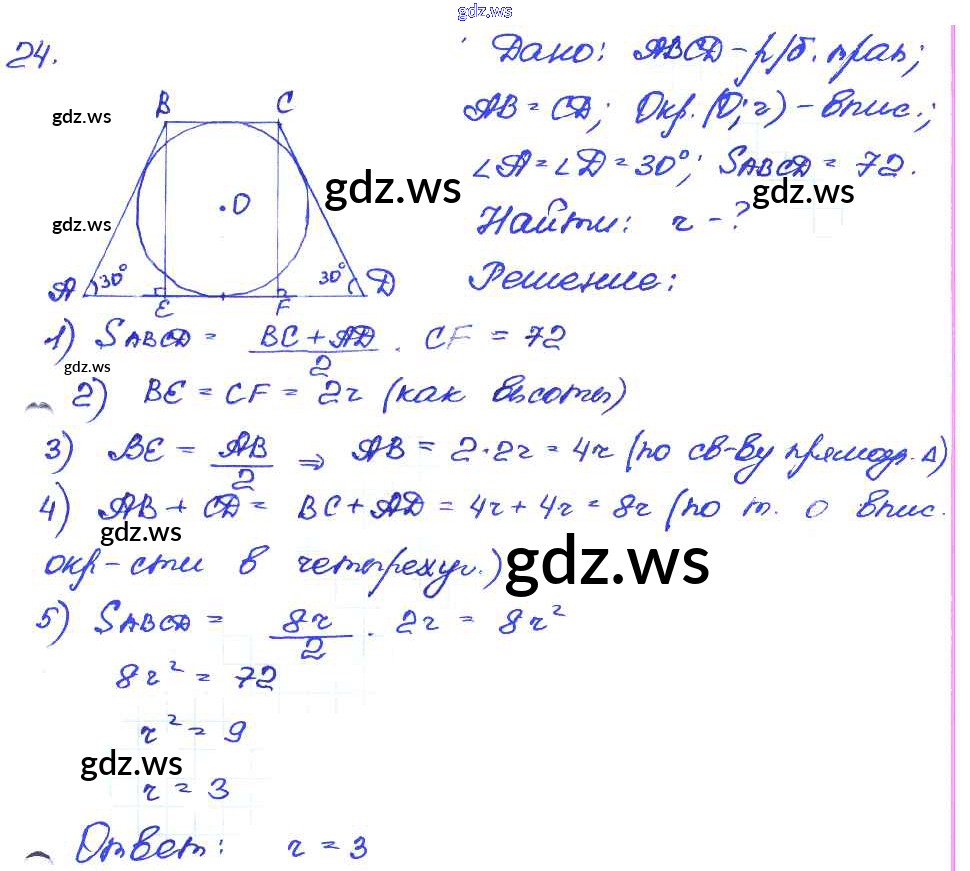 gdz.ws
24.
Дано: ABCD – р/б. трап;
AB = CD; Окр.(O; r) – впис.;
∠A = ∠D = 30°; SABCD = 72.
Найти: r – ?
Решение:
B C
gdz.ws
gdz.ws
gdz.ws
gdz.ws
O
A 30° 30° D
E F
1) SABCD = (BC + AD)/2 · CF = 72
gdz.ws
2) BE = CF = 2r (как высоты)
3) BE = AB/2 ⇒ AB = 2·2r = 4r (по св-ву прямоуг. Δ)
4) AB + CD = BC + AD = 4r + 4r = 8r (по т. о впис.
gdz.ws
окр-сти в четырехуг.)
gdz.ws
5) SABCD = 8r/2 · 2r = 8r²
8r² = 72
r² = 9
gdz.ws
r = 3
Ответ: r = 3